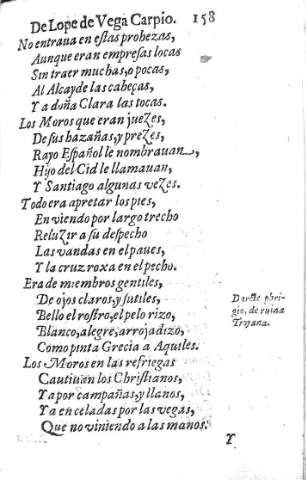 De Lope de Vega Carpio. 158
No entraua en eſtas prohezas,
Aunque eran empreſas locas
Sin traer muchas, o pocas,
Al Alcayde las cabeças,
Y a doña Clara las tocas.
Los Moros que eran juezes,
De ſus hazañas, y prezes,
Rayo Eſpañol le nombrauan,
Hijo del Cid le llamauan,
Y Santiago algunas vezes.
Todo era apretar los pies,
En viendo por largo trecho
Reluzir a ſu deſpecho
Las vandas en el paues,
Y la cruz roxa en el pecho.
Era de miembros gentiles,
De ojos claros, y ſutiles,
Bello el roſtro, el pelo rizo,
Blanco, alegre, arrojadizo,
Como pinta Grecia a Aquiles.
Darete phri-
gio, de ruina
Troyana.
Los Moros en las refriegas
Cautiuan los Chriſtianos,
Ya por campañas, y llanos,
Ya en celadas por las vegas,
Que no viniendo a las manos.
Y